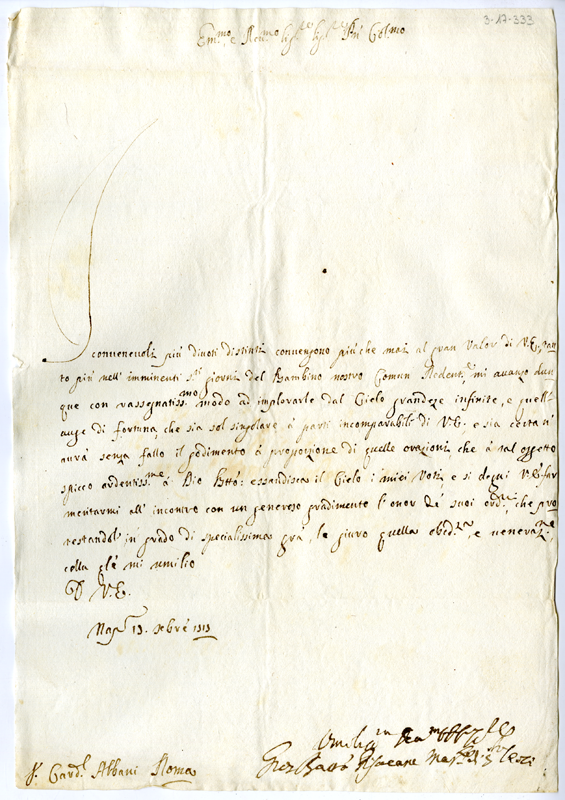 3-17-333
Em.mo, e Reu.mo Sig.re Sig.re Pñe Col.mo
I convenevoli più divoti distinti convengono più che mai al gran valor di V.E., tan
to più nell' imminenti S.ti giorni del Bambino nostro Comun Redent.re mi avanzo dun
que con rassegnatiss.mo modo ad implorarle dal Cielo grandeze infinite, e quell'
auge di fortuna, che sia sol singolare à parti incomparabili di V.E. e sia certa n'
aurà senza fallo il godimento à proporzione di quelle orazioni, che à tal oggetto
spicco ardentiss.me à Dio bñto: essaudisca il Cielo i miei Voti e si degni V.E. far
meritarmi all' incontro con un generoso gradimento l'onor de suoi ord.ni, che pro
testandol' in grado di specialissima grã, le giuro quella obed.za, e veneraz.ne
colla qle mi umilio
D. V.E.
Nap. 13. Xbre 1713
S.r Card.l Albani Roma